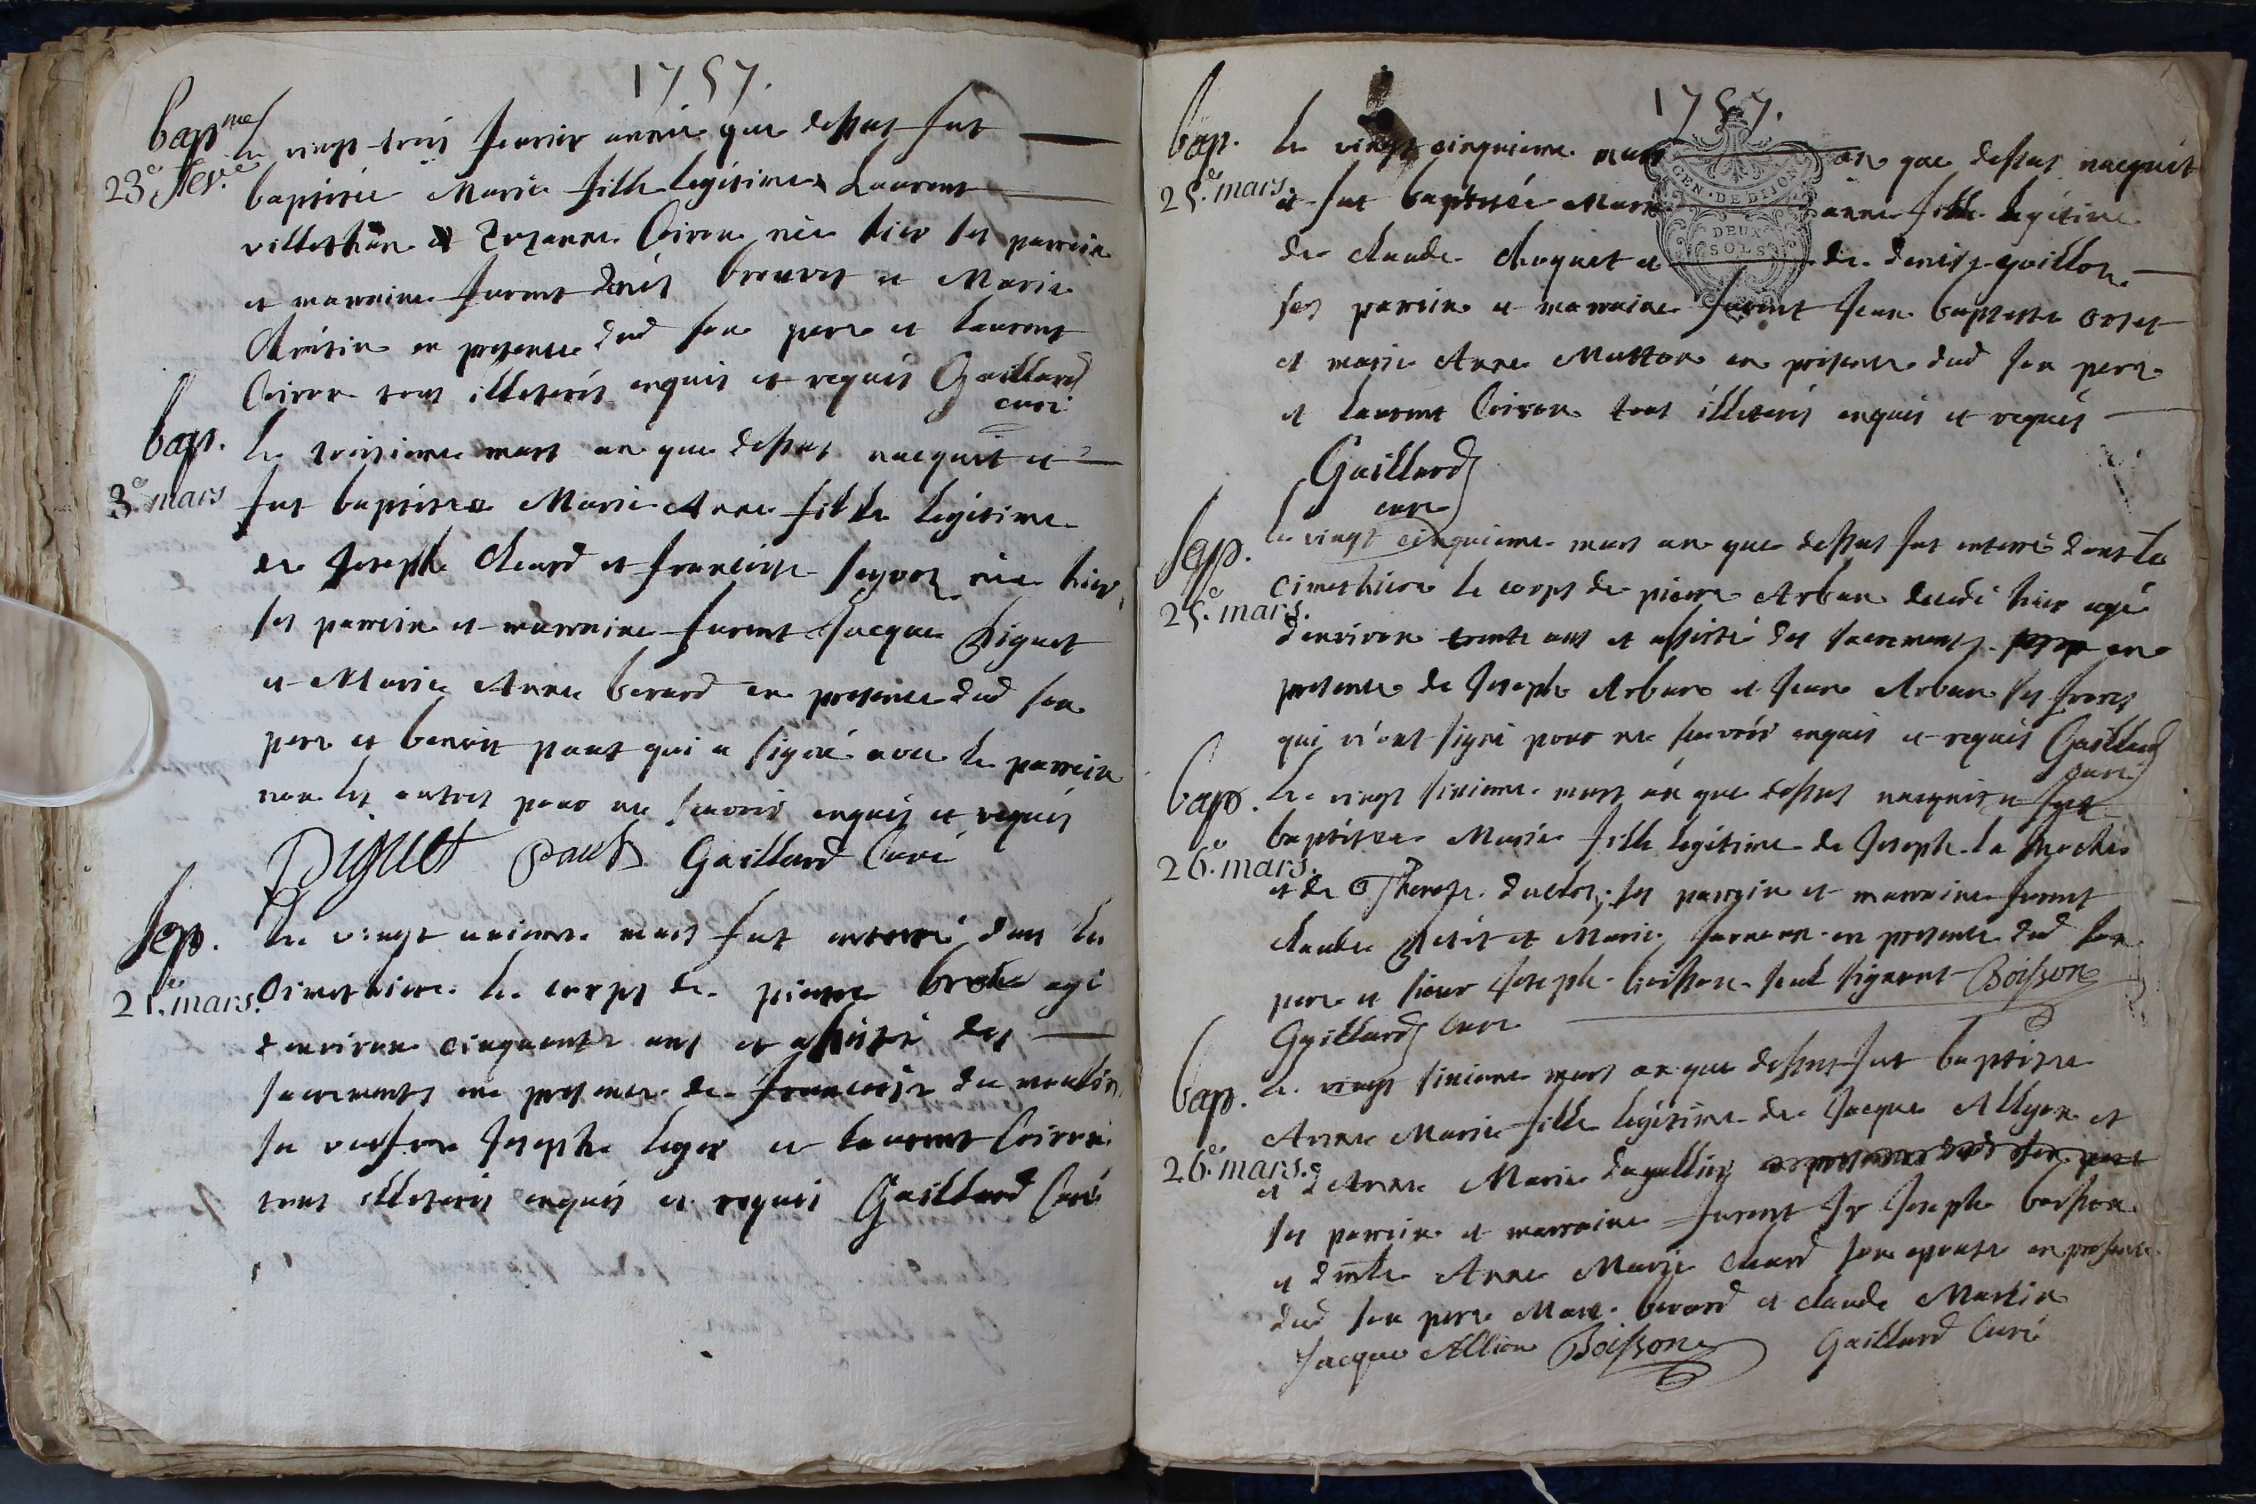 1757.
bap.me
23.e fev.e
le vingt-trois fevrier année que dessus fut
baptisée Marie fille legitime Laurent
villethan et Suzanne Coiron née hier ses parrein
et marraine furent Denis brouvet et Marie
Chrétin en presence dud son pere et Laurent
Coiron tous illeterés enquis et requis Gaillard
curé
bap.
3.e mars
le troisieme mars an que dessus nacquit et
fut baptisée Marie Anne fille legitime
de Joseph Chard et francoise née hier
ses parrein et marraine furent Jacque Piguet
et Marie Anne berard en presence dud son
pere et benoit paut qui a signé avec le parrein
non les autres pour ne scavoir enquis et requis
Piguet paut Gaillard Curé
Sep.
21.e mars.
le vingt unieme mars fut enterré dans le
cimethiere le corps de pierre agé
denviron cinquante ans et assisté des
sacrements en presence de francoise du moulin
sa Joseph leger et Laurent Coiron
tous illeterés enquis et requis Gaillard Curé
1757.
GEN. DE DIJON
DEUX
SOLS
bap.
25.e mars.
le vingt cinquieme mars an que dessus nacquit
et fut baptisée Marie anne fille legitime
de claude choquet et de denise goillon
ses parrein et marraine furent Jean baptiste orset
et marie Anne Mutton en presence dud son pere
et Laurent Coiron tous illeterés enquis et requis
Gaillard
curé
Sep.
25.e mars.
le vingt cinquieme mars an que dessus fut enterré dans le
cimethiere le corps de pierre Arban decedé hier agé
denviron trente ans et assisté des sacrements en
presence de Joseph Arban et Jean Arban ses freres
qui n'ont signé pour ne scavoir enquis et requis Gaillard
curé
bap.
26.e mars.
le vingt sixieme mars an que dessus nacquit et fut
baptisée Marie fille legitime de Joseph
et de Therese duclos; ses parrein et marraine furent
claude Petit et Marie en presence dud son
pere et sieur Joseph boisson seul signant Boisson
Gaillard Curé
bap.
26.e mars.
le vingt sixieme mars an que dessus fut baptisée
Anne Marie fille legitime de Jacque Allyon et
et d'Anne Marie en presence dud son pere
ses parrein et marraine furent sr Joseph boisson
et dmlle Anne Marie Chard son epouse en presence
dud son pere Marc berard et claude Martin
Jacque Allion Boisson Gaillard Curé